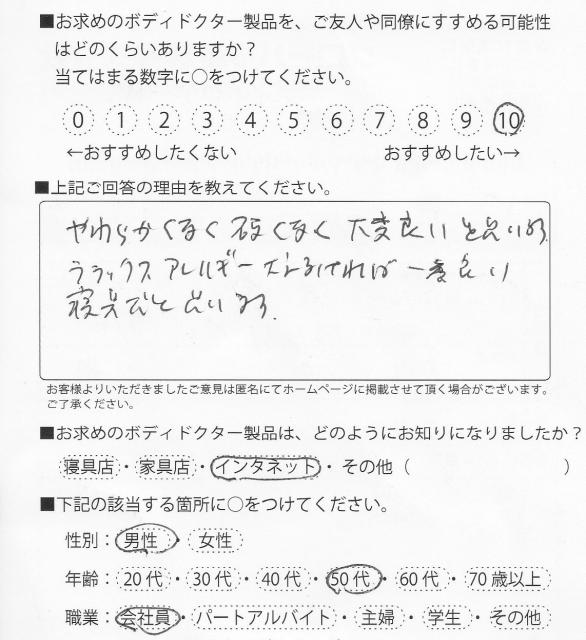 ■お求めのボディドクター製品を、ご友人や同僚にすすめる可能性
はどのくらいありますか？
当てはまる数字に○をつけてください。
0 1 2 3 4 5 6 7 8 9 10
←おすすめしたくない おすすめしたい→
■上記ご回答の理由を教えてください。
やわらかくなく 硬くなく 大変良いと思います。
ラテックスアレルギーでなければ 一番良い
寝具だと思います。
お客様よりいただきましたご意見は匿名にてホームページに掲載させて頂く場合がございます。
ご了承ください。
■お求めのボディドクター製品は、どのようにお知りになりましたか？
寝具店・家具店・インタネット・その他（ ）
■下記の該当する箇所に○をつけてください。
性別：男性・女性
年齢：20代・30代・40代・50代・60代・70歳以上
職業：会社員・パートアルバイト・主婦・学生・その他